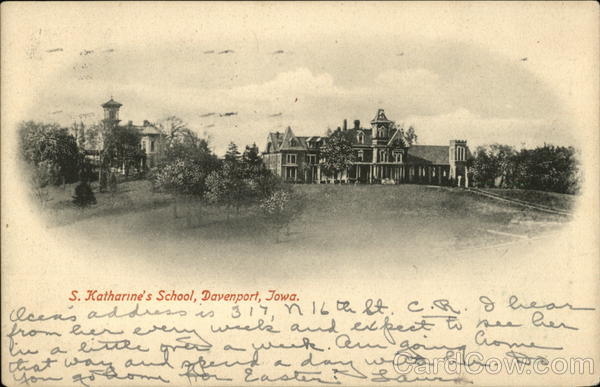 S. Katharine's School, Davenport, Iowa.
Ocea's address is 317, N 16th St. C.R. I hear
from her every week and expect to see her
in a little over a week. Am going home
that way and spend a day with her. Do
you go home for Easter?
CardCow.com